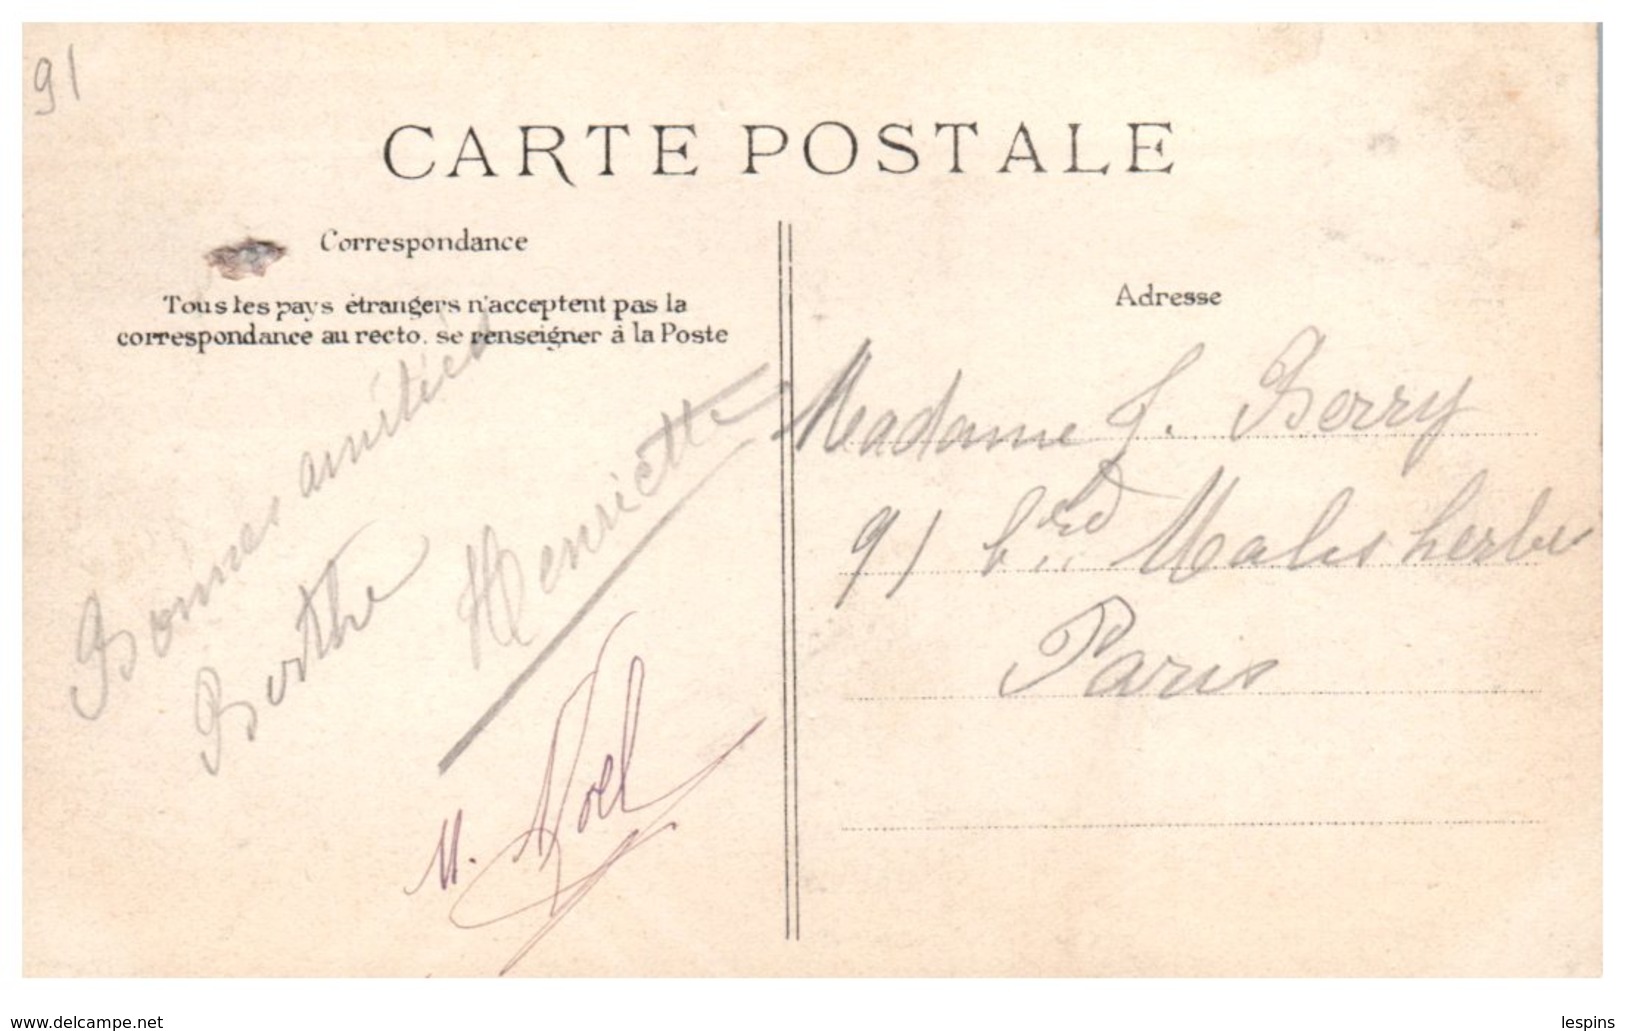 91
CARTE POSTALE
Correspondance
Tous les pays étrangers n'acceptent pas la
correspondance au recto. se renseigner à la Poste
Bonnes amitiés
Berthe Henriette
M. Noel
Adresse
Madame J. Berry
91 bard Malesherbes
Paris
www.delcampe.net
lespins